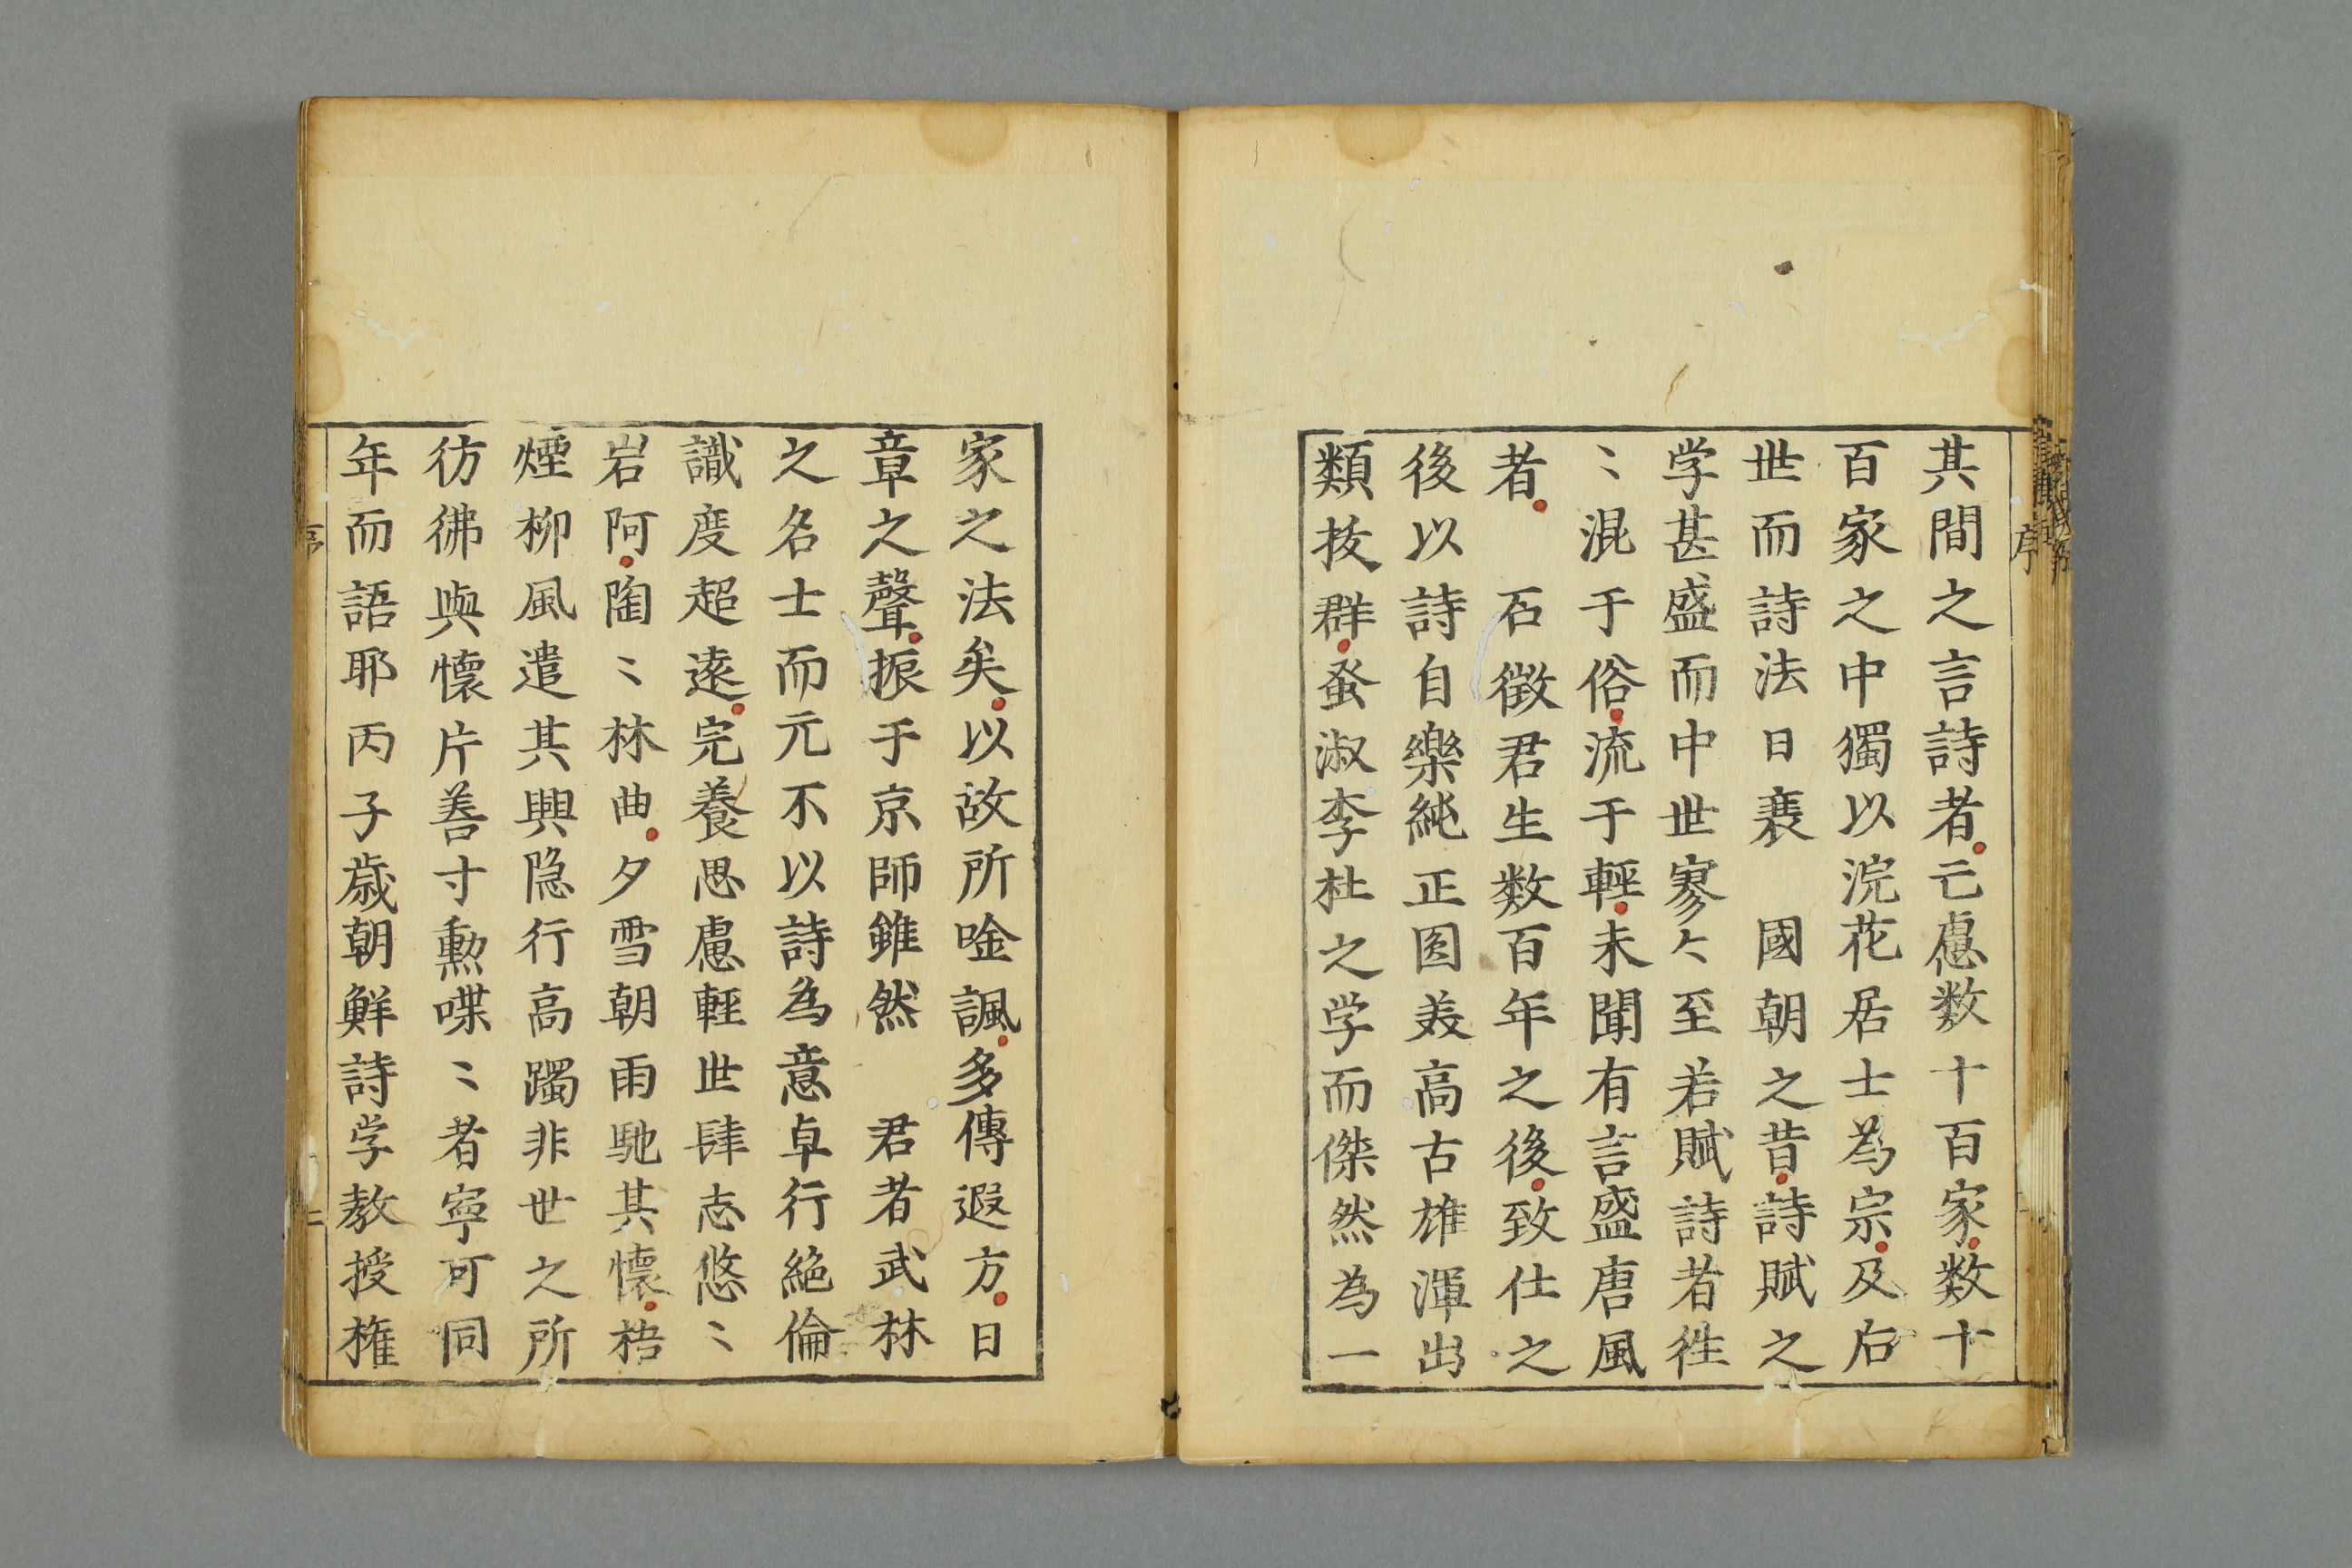 序
其間之言詩者亡慮数十百家数十
百家之中獨以浣花居士為宗及后
世而詩法日衰　國朝之昔詩賦之
学甚盛而中世寥〻至若賦詩者徃
〻混于俗流于輕未聞有言盛唐風
者　石徵君生数百年之後致仕之
後以詩自樂純正圎美高古雄渾出
類抜群蚤淑李杜之学而傑然為一
家之法矣以故所唫諷多傳遐方日
章之聲振于京師雖然　君者武林
之名士而元不以詩為意卓行絶倫
識度超遠完養思慮輕世肆志悠〻
岩阿陶〻林曲夕雪朝雨馳其懷梧
煙柳風遣其興隐行高躅非世之所
彷彿與懷片善寸勳喋〻者寧可同
年而語耶丙子歳朝鮮詩学教授権
序
二